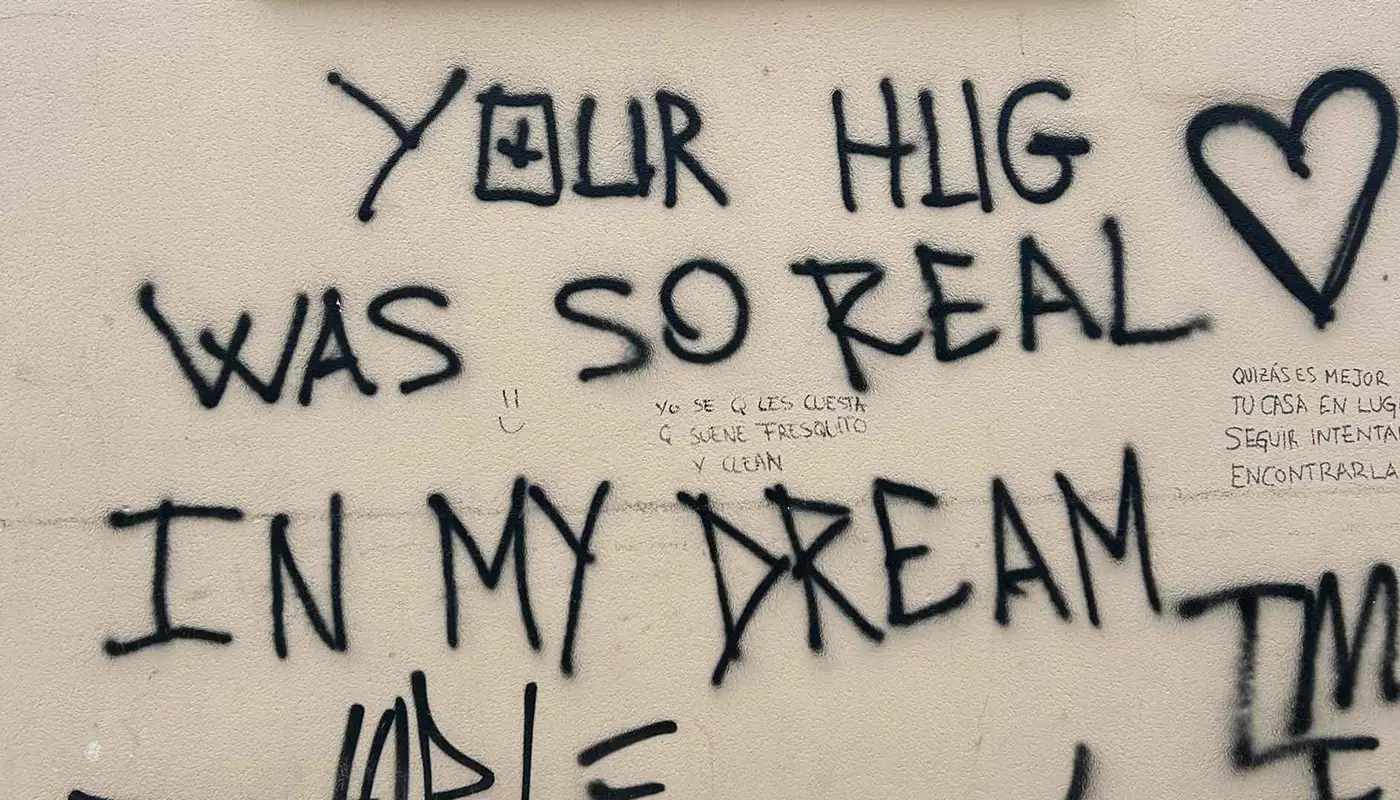 YOUR HUG
WAS SO REAL
YO SE Q LES CUESTA
Q SUENE FRESQUITO
Y CLEAN
QUIZÁS ES MEJOR
TU CASA EN LUG
SEGUIR INTENTA
ENCONTRARLA
IN MY DREAM